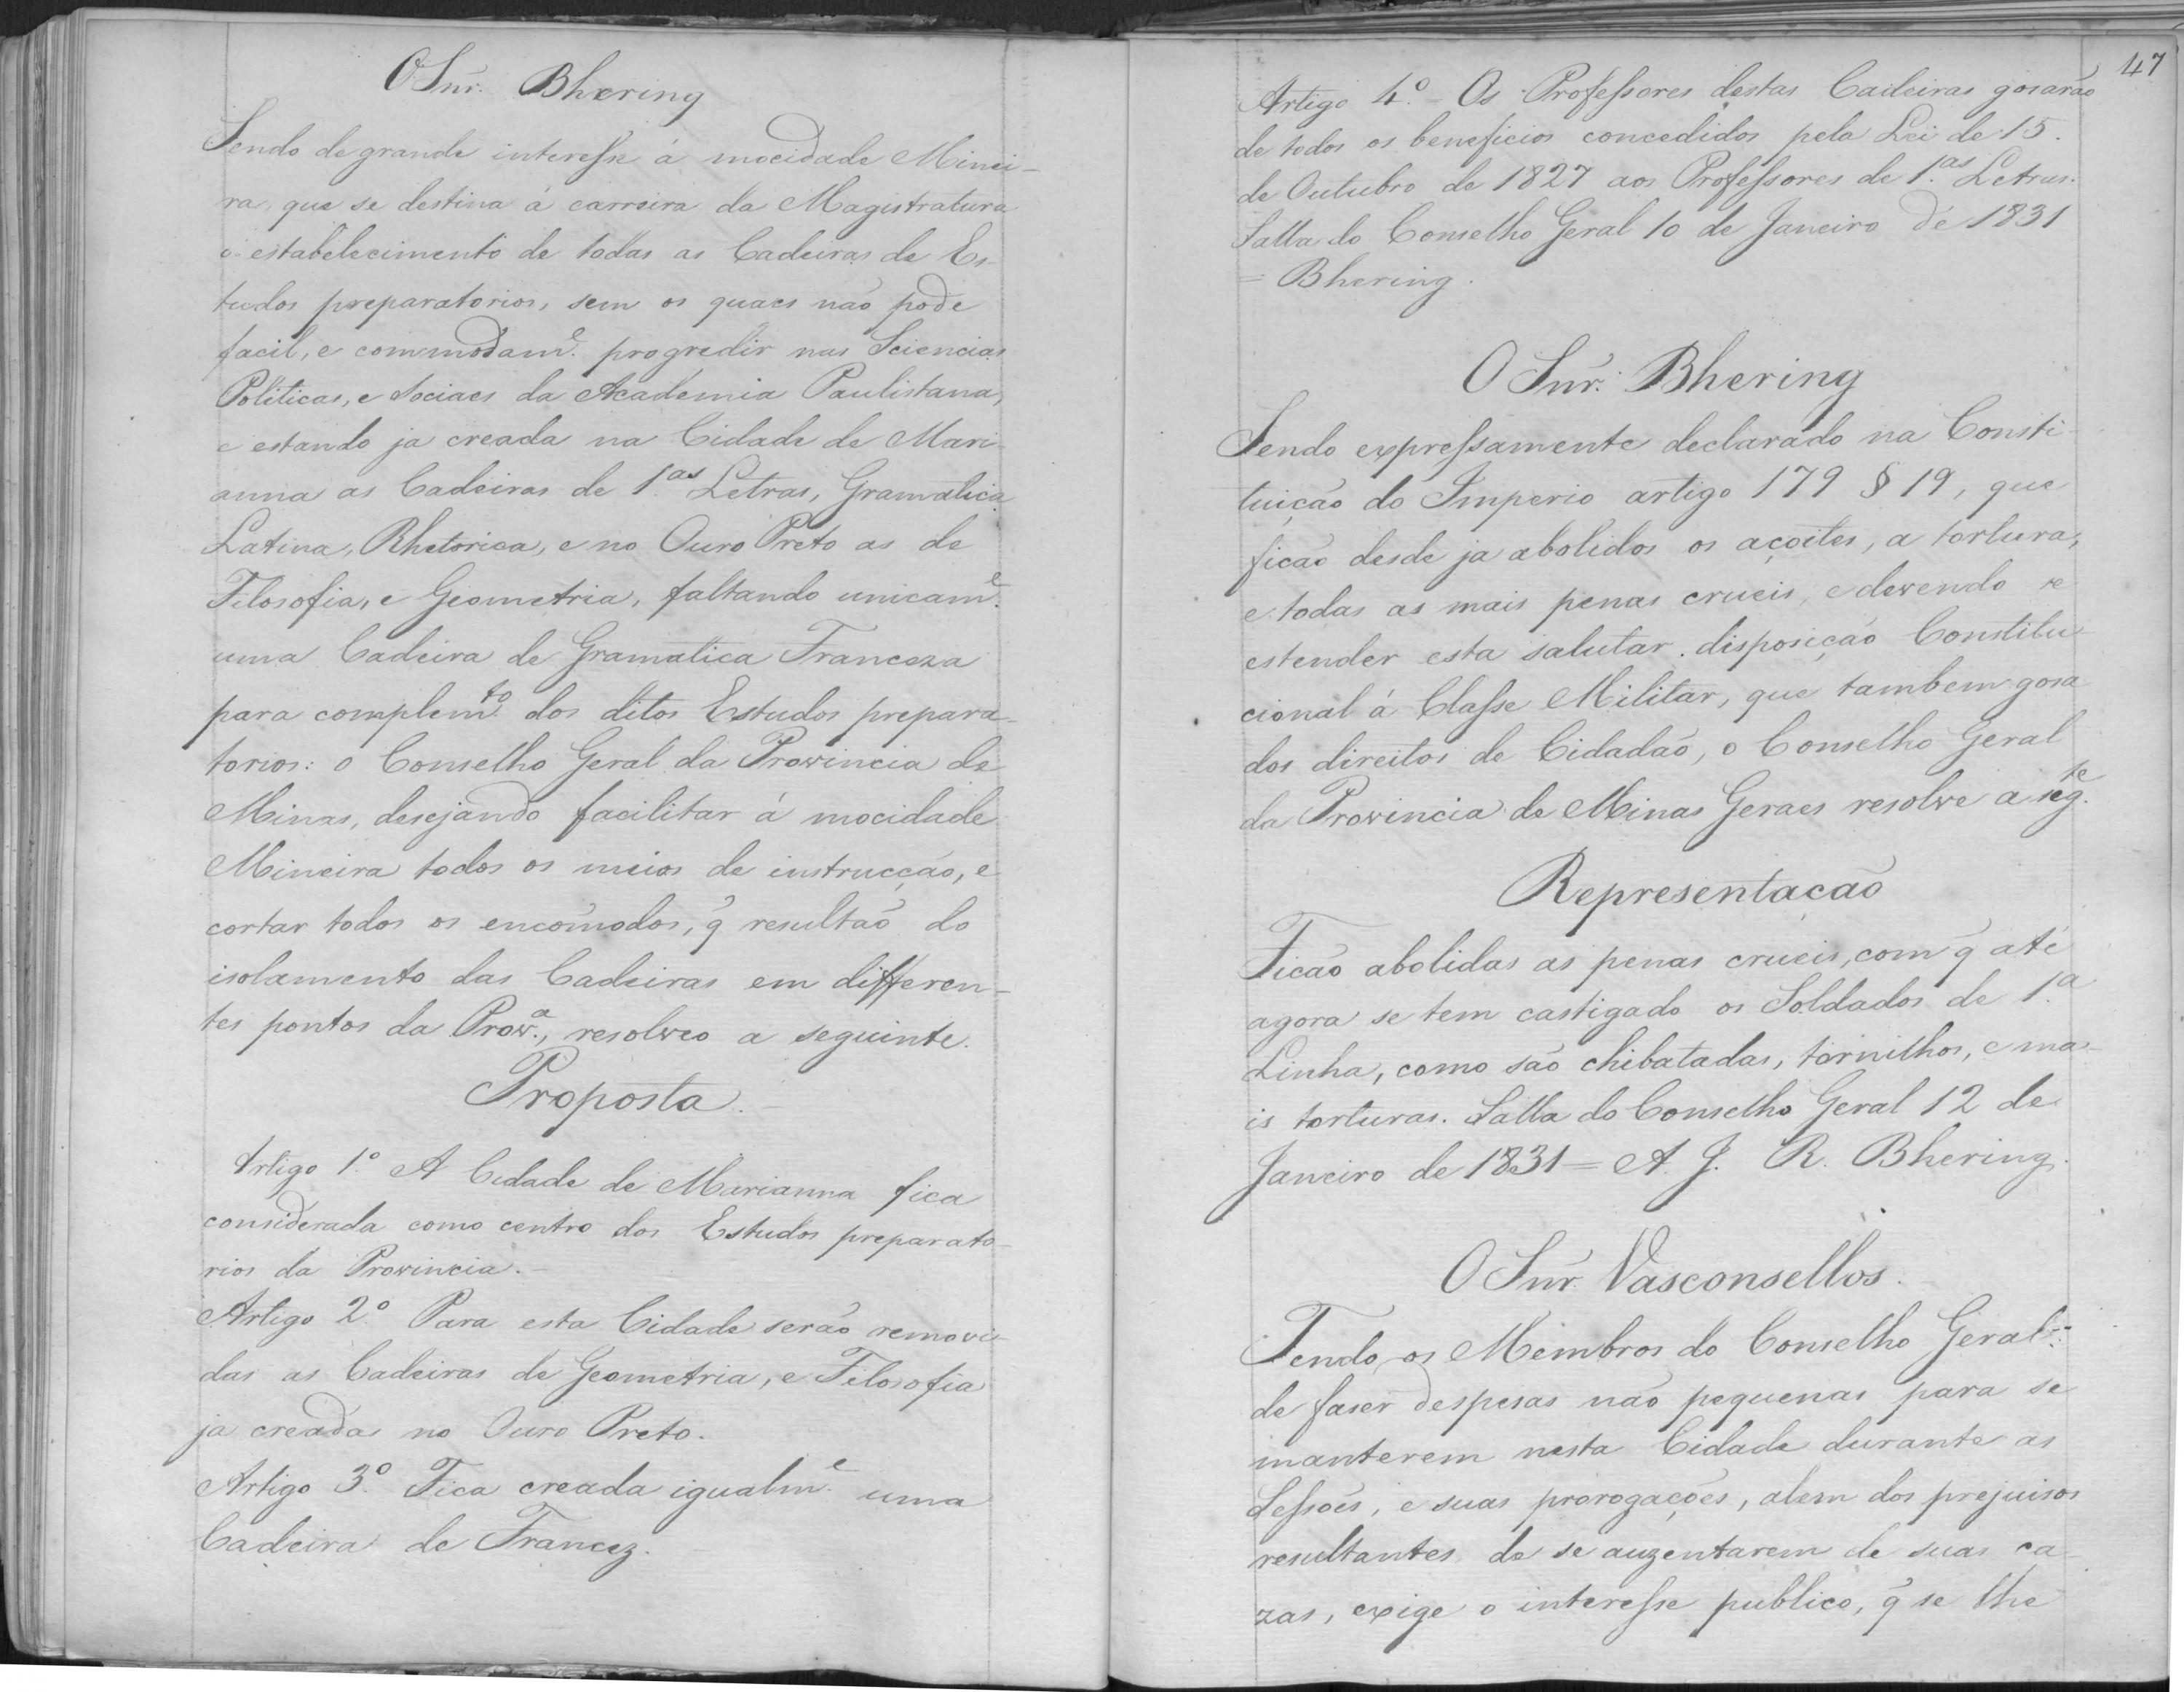 O Snr. Bhering
Sendo de grande interesse á mocidade Minei-
ra, que se destina á carreira da Magistratura
o estabelecimento de todas as Cadeiras de Es-
tudos preparatorios, sem os quaes não pode
facil, e commodamᵉ. progredir nas Sciencias
Politicas, e Sociaes da Academia Paulistana,
e estando ja creada na Cidade de Mari-
anna as Cadeiras de 1.ᵃˢ Letras, Gramatica
Latina, Rhetorica, e no Ouro Preto as de
Filosofia, e Geometria, faltando unicamᵉ.
uma Cadeira de Gramatica Franceza
para complemᵗᵒ. dos ditos Estudos prepara-
torios: o Conselho Geral da Provincia de
Minas, desejando facilitar á mocidade
Mineira todos os meios de instrucção, e
cortar todos os encõmodos, q̃ resultão do
isolamento das Cadeiras em differen-
tes pontos da Provᵃ., resolveo a seguinte.
Proposta.
Artigo 1.º A Cidade de Marianna fica
considerada como centro dos Estudos preparato-
rios da Provincia.
Artigo 2.º Para esta Cidade serão removi-
das as Cadeiras de Geometria, e Filosofia
ja creadas no Ouro Preto.
Artigo 3.º Fica creada igualmᵉ. uma
Cadeira de Francez.
47
Artigo 4.º Os Professores destas Cadeiras gosarão
de todos os beneficios concedidos pela Lei de 15.
de Outubro de 1827 aos Professores de 1.ᵃˢ Letras.
Salla do Conselho Geral 10 de Janeiro de 1831
= Bhering.
O Snr. Bhering
Sendo expressamente declarado na Consti-
tuição do Imperio artigo 179 § 19, que
ficão desde ja abolidos os açoites, a tortura,
e todas as mais penas crueis, e devendo se
estender esta salutar disposição Constitu-
cional á Classe Militar, que tambem gosa
dos direitos de Cidadão, o Conselho Geral
da Provincia de Minas Geraes resolve a segᵗᵉ.
Representação
Ficão abolidas as penas crueis, com q̃ até
agora se tem castigado os Soldados de 1.ᵃ
Linha, como são chibatadas, tornilhos, e ma-
is torturas. Salla do Conselho Geral 12 de
Janeiro de 1831 = A. J. R. Bhering.
O Snr. Vasconsellos.
Tendo os Membros do Conselho Geral
de faser despesas não pequenas para se
manterem nesta Cidade durante as
Sessões, e suas prorogações, alem dos prejuisos
resultantes de se auzentarem de suas ca-
zas, exige o interesse publico, q̃ se lhe